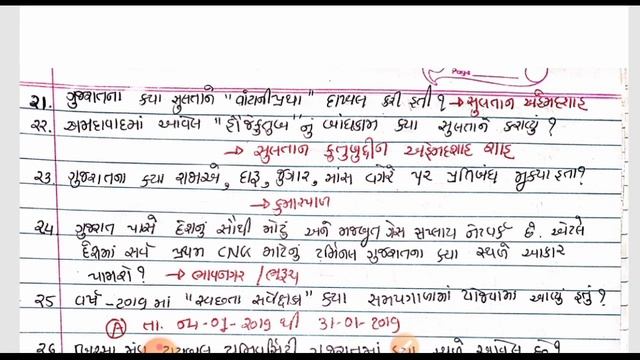 Page
૨૧. ગુજરાતના ક્યા સુલતાને "વાંટાની પ્રથા" દાખલ કરી હતી? → સુલતાન અહેમદશાહ
૨૨. અમદાવાદમાં આવેલ "હૌજેકુતુબ" નું બાંધકામ ક્યા સુલતાને કરાવ્યું?
→ સુલતાન કુતુબુદ્દીન અહેમદશાહ શાહ
૨૩. ગુજરાતના ક્યા રાજાએ, દારૂ, જુગાર, માંસ વગેરે પર પ્રતિબંધ મુક્યા હતા?
→ કુમારપાળ
૨૪. ગુજરાત પાસે દેશનું સૌથી મોટું અને મજબુત ગેસ સપ્લાય નેટવર્ક છે. એટલે
દેશમાં સર્વ પ્રથમ CNG માટેનું ટર્મિનલ ગુજરાતના ક્યા સ્થળે આકાર
પામશે? → ભાવનગર / ભરૂચ
૨૫ વર્ષ -૨૦૧૭માં "સ્વચ્છતા સર્વેક્ષણ" ક્યા સમયગાળામાં યોજવામાં આવ્યું હતું?
Ⓐ તા. 04-01-૨૦૧૭ થી 31-01-૨૦૧૭
૨૬